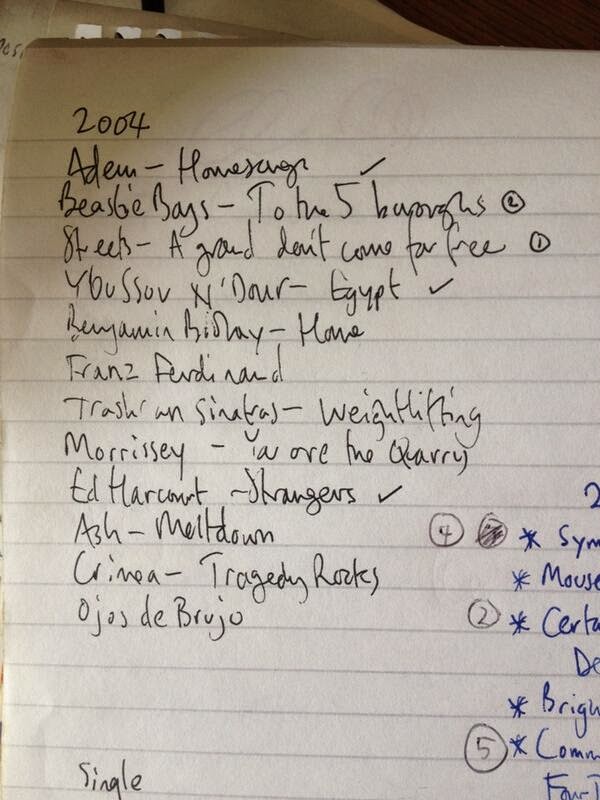 2004
Adem - Homesongs ✓
Beastie Boys - To the 5 buroughs ②
Streets - A grand don't come for free ①
Youssou N'Dour - Egypt ✓
Benjamin Biolay - Home
Franz Ferdinand
Trashcan Sinatras - Weightlifting
Morrissey - You are the Quarry
Ed Harcourt - Strangers ✓
Ash - Meltdown
Crimea - Tragedy Rocks
Ojos de Brujo
Single
2
④ * Sym
* Mouse
② * Certa
De
* Brigh
⑤ * Comm
Four-T